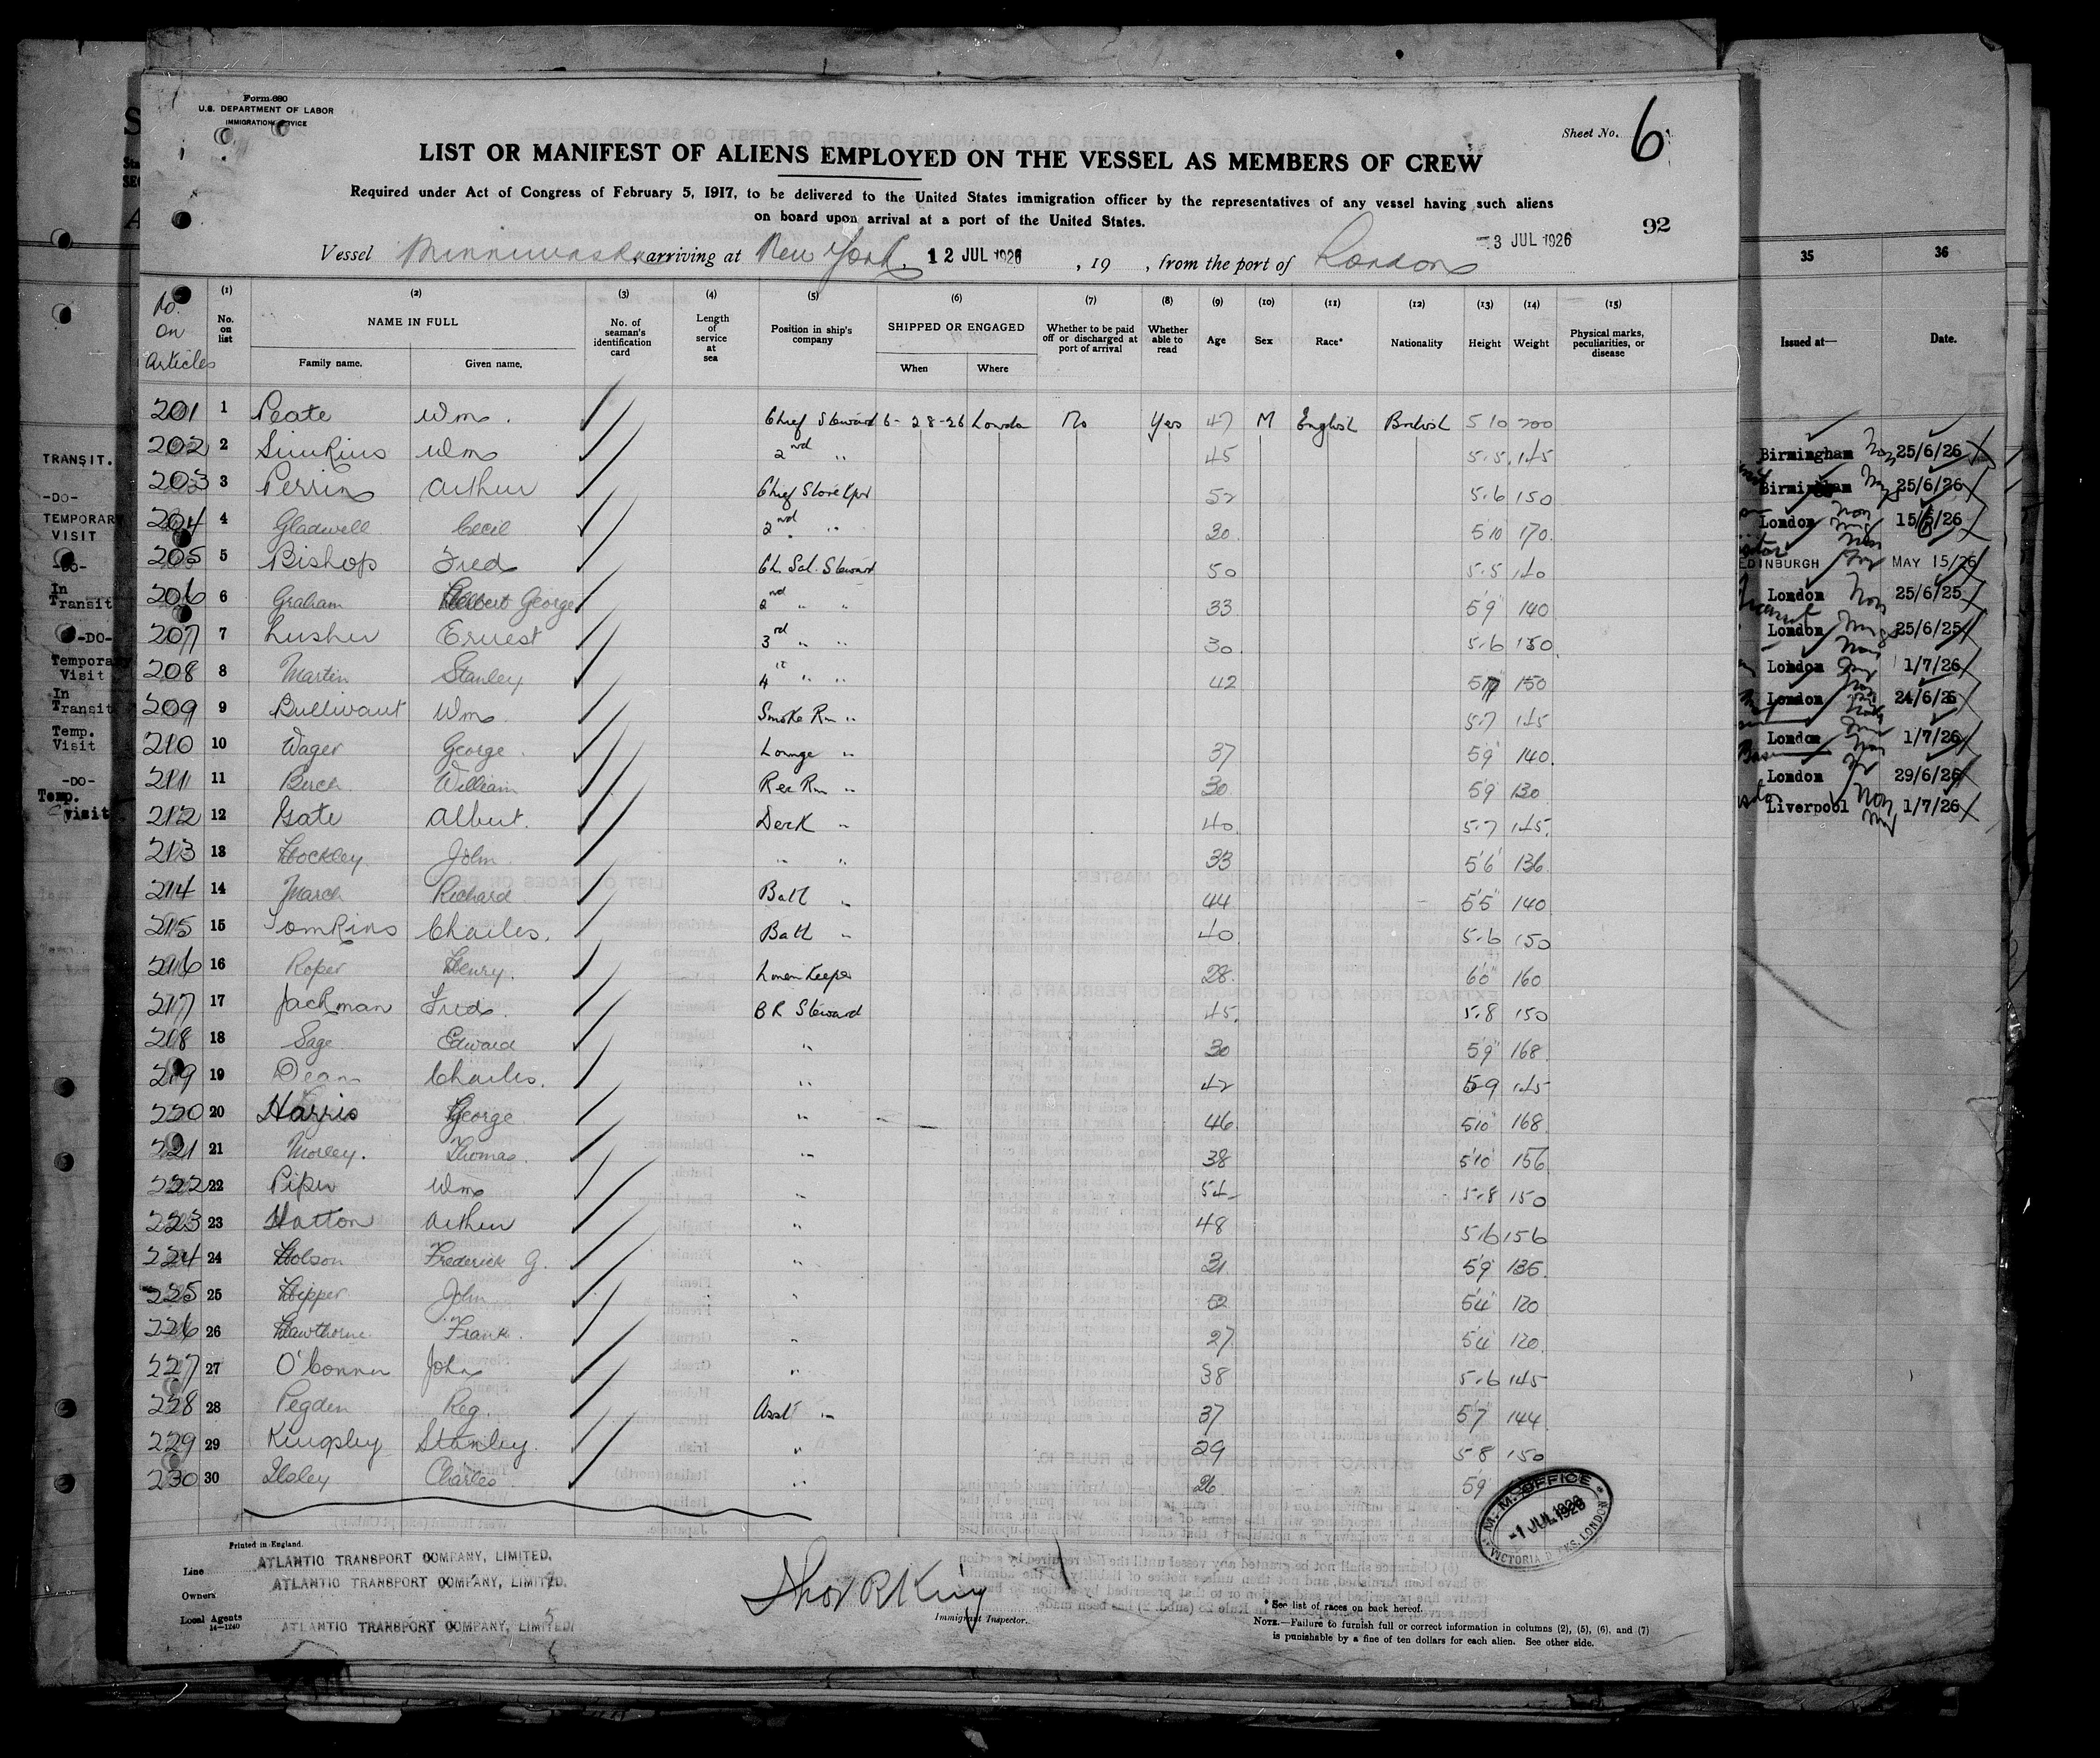 Form 680
U.S. DEPARTMENT OF LABOR
IMMIGRATION SERVICE
Sheet No. 6
LIST OR MANIFEST OF ALIENS EMPLOYED ON THE VESSEL AS MEMBERS OF CREW
Required under Act of Congress of February 5, 1917, to be delivered to the United States immigration officer by the representatives of any vessel having such aliens
on board upon arrival at a port of the United States.
92
Vessel Minnewaska, arriving at New York. 12 JUL 1926, 19 , from the port of London 3 JUL 1926
No. on Articles
(1) No. on list
(2) NAME IN FULL Family name. Given name.
(3) No. of seaman's identification card
(4) Length of service at sea
(5) Position in ship's company
(6) SHIPPED OR ENGAGED When Where
(7) Whether to be paid off or discharged at port of arrival
(8) Whether able to read
(9) Age
(10) Sex
(11) Race*
(12) Nationality
(13) Height
(14) Weight
(15) Physical marks, peculiarities, or disease
201 1 Peate Wm. Chief Steward 6-28-26 London No Yes 47 M English British 5 10 200
202 2 Simkins Wm 2nd " 45 5.5 145
203 3 Perrin Arthur Chief Storekpr 52 5.6 150
204 4 Gladwell Cecil 2nd " 30 5 10 170
205 5 Bishop Fred Ch. Sal. Steward 50 5.5 140
206 6 Graham George 2nd " " 33 5'9" 140
207 7 Lusher Ernest 3rd " " 30 5.6 150
208 8 Martin Stanley 4 " " 42 150
209 9 Bullivant Wm. Smoke Rm " 5.7 145
210 10 Wager George Lounge " 37 5'9" 140
211 11 Birch William Rec Rm " 30 5'9" 130
212 12 Gate Albert. Deck " 40 5.7 145
213 13 Hockley John " " 33 5'6" 136
214 14 March Richard Bath " 44 5'5" 140
215 15 Tomkins Charles. Bath " 40 5.6 150
216 16 Roper Henry. Linen Keeper 28 6'0" 160
217 17 Jackman Fred. B R Steward 45 5.8 150
218 18 Sage Edward " 30 5'9" 168
219 19 Dean Charles. " 42 5.9 145
220 20 Harris George " 46 5'10" 168
221 21 Morley. Thomas. " 38 5'10" 156
222 22 Piper Wm " 54 5.8 150
223 23 Hatton Arthur " 48 5.6 156
224 24 Hobson Frederick G. " 31 5'9" 135
225 25 Hipper John " 52 5'4" 120
226 26 Hawthorne Frank. " 27 5'4" 120
227 27 O'Conner John " 38 5.6 145
228 28 Pegden Reg. Asst " 37 5'7" 144
229 29 Kingsley Stanley. " 29 5 8 150
230 30 Ilsley Charles " 26 5'9"
M. M. OFFICE
-1 JUL 1926
VICTORIA DOCKS, LONDON
Printed in England.
Line ATLANTIC TRANSPORT COMPANY, LIMITED.
Owners ATLANTIC TRANSPORT COMPANY, LIMITED.
Local Agents ATLANTIC TRANSPORT COMPANY, LIMITED
14—1240
Thos R King
Immigrant Inspector.
* See list of races on back hereof.
NOTE.—Failure to furnish full or correct information in columns (2), (5), (6), and (7)
is punishable by a fine of ten dollars for each alien. See other side.
TRANSIT.
-DO-
TEMPORARY
VISIT
-DO-
In
Transit
-DO-
Temporary
Visit
In
Transit
Temp.
Visit
-DO-
Temp.
Visit
35 36
Issued at— Date.
Birmingham 25/6/26
Birmingham 25/6/26
London 15/6/26
EDINBURGH MAY 15/26
London 25/6/25
London 25/6/25
London 1/7/26
London 24/6/26
London 1/7/26
London 29/6/26
Liverpool 1/7/26